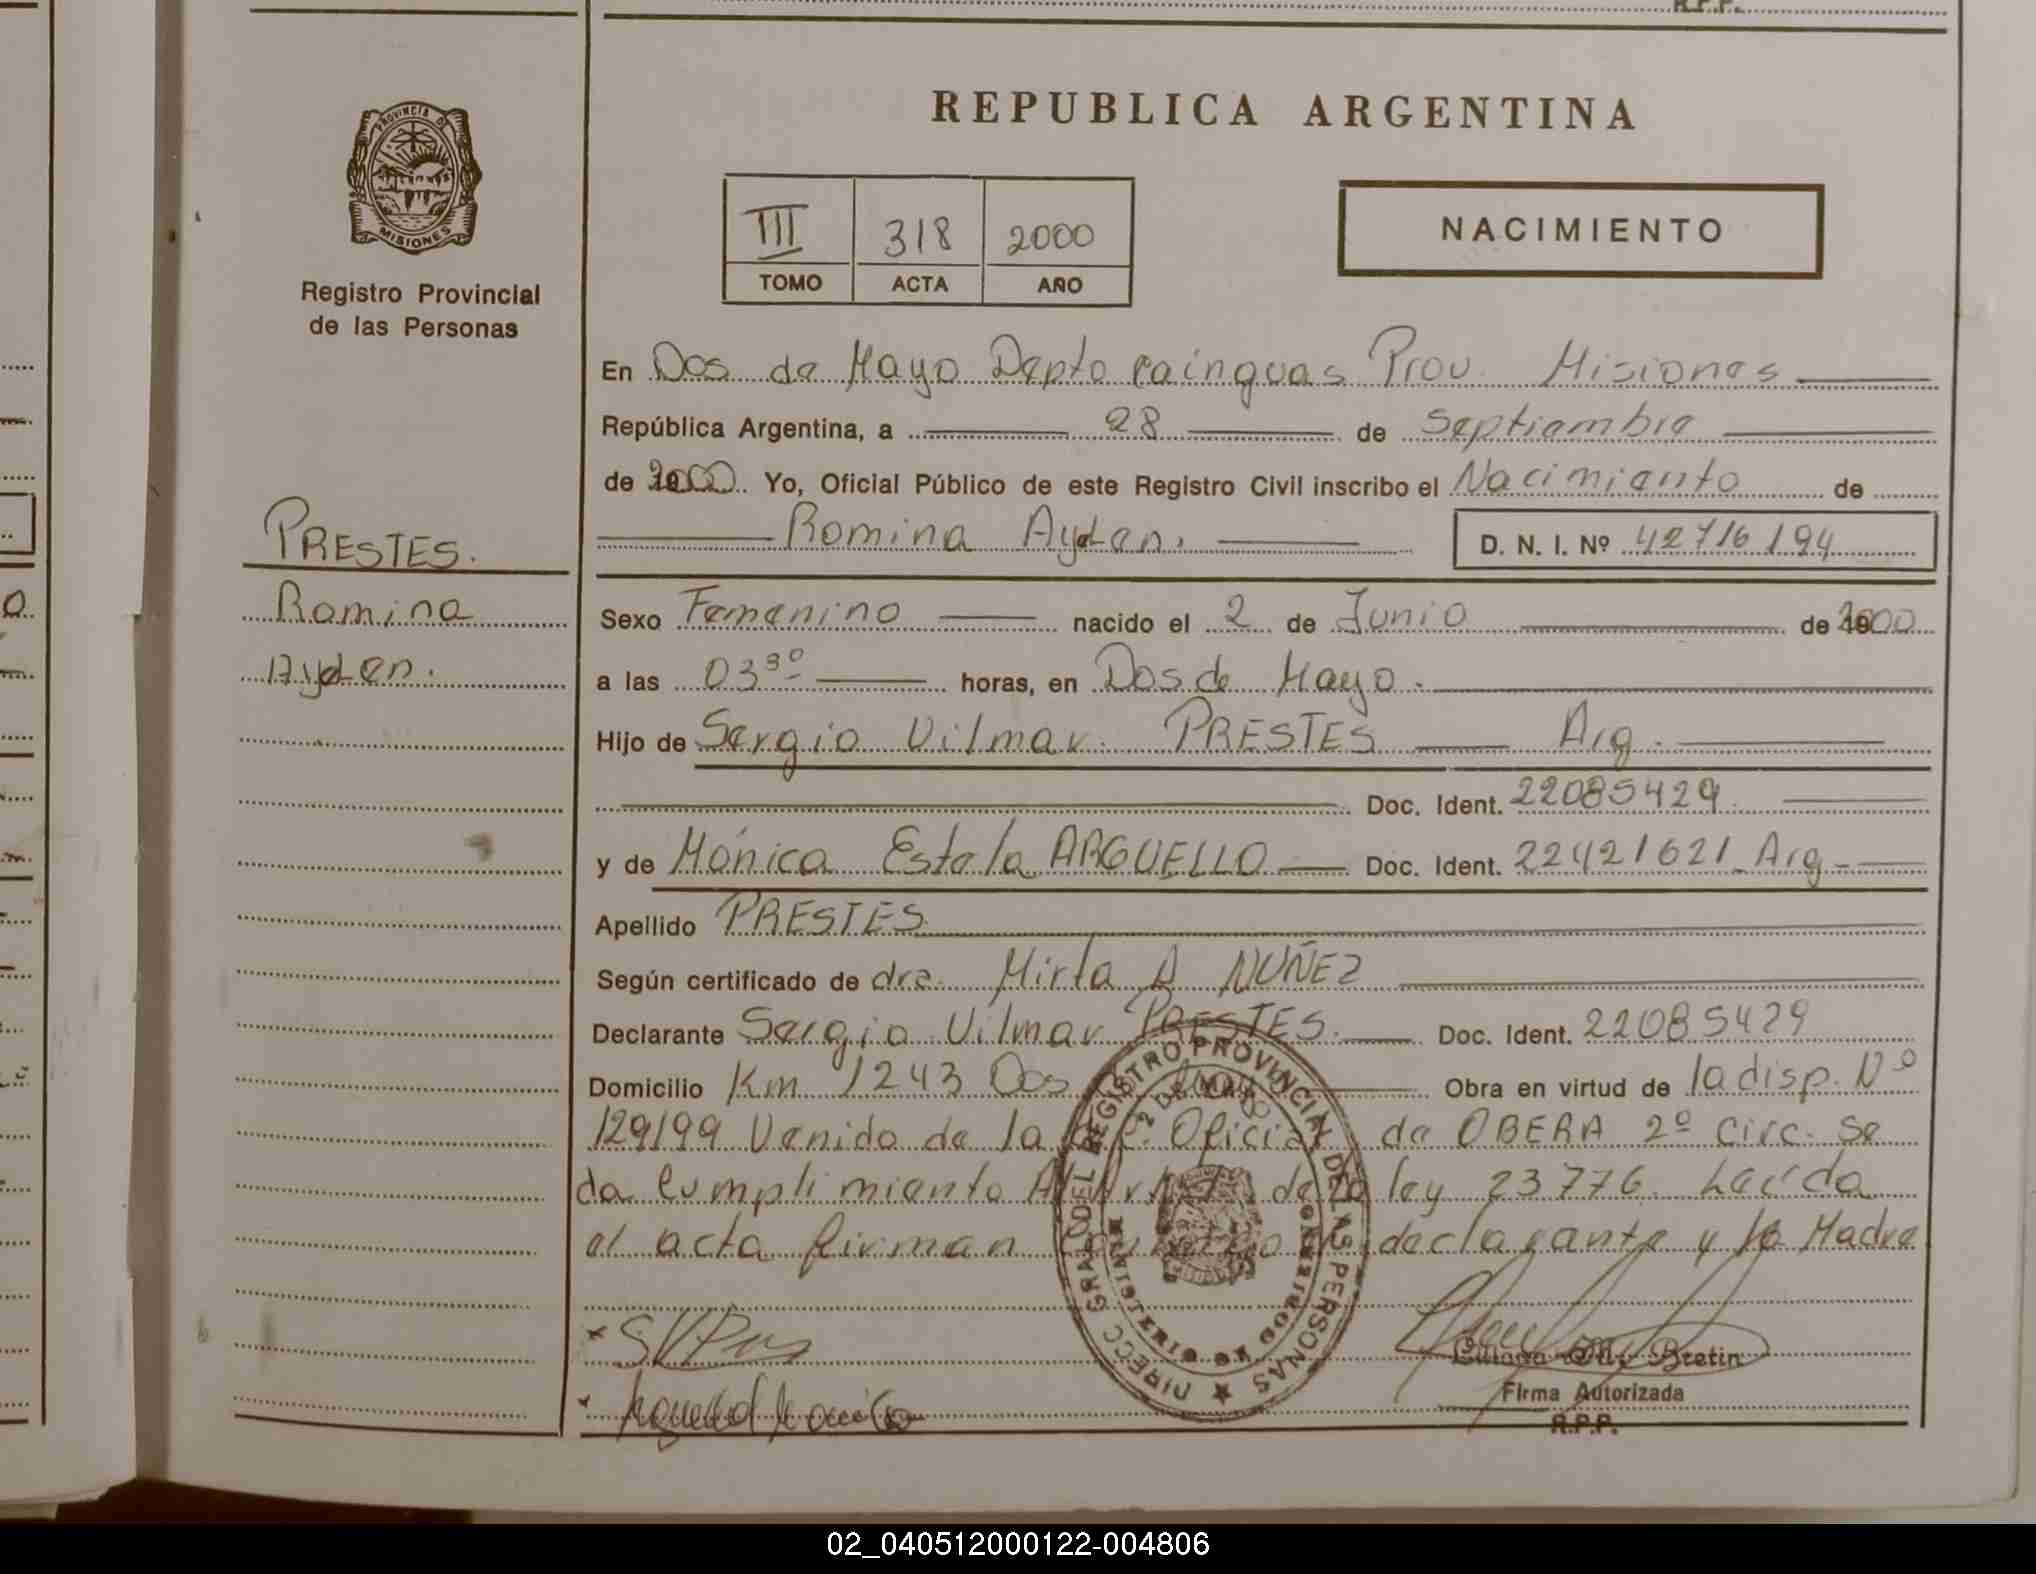 R.P.P.
REPUBLICA ARGENTINA
PROVINCIA DE
MISIONES
Registro Provincial
de las Personas
III 318 2000
TOMO ACTA AÑO
NACIMIENTO
En Dos de Mayo Depto Cainguas Prov. Misiones
República Argentina, a 28 de Septiembre
de 2000. Yo, Oficial Público de este Registro Civil inscribo el Nacimiento de
Romina Aylen. D. N. I. Nº 42716194
PRESTES.
Romina
Aylen.
Sexo Femenino nacido el 2 de Junio de 2000
a las 03 30 horas, en Dos de Mayo.
Hijo de Sergio Vilmar PRESTES Arg.
Doc. Ident. 22085429
y de Mónica Estela ARGUELLO Doc. Ident. 22421621 Arg.
Apellido PRESTES
Según certificado de dra. Mirta A NUÑEZ
Declarante Sergio Vilmar PRESTES. Doc. Ident. 22085429
Domicilio Km 1243 Dos de Mayo Obra en virtud de la disp. Nº
129/99 Venido de la Oficial de OBERA 2º Circ. Se
da Cumplimiento Al de la ley 23776. Leída
el acta firman declarante y la Madre
DIRECC GRAL DEL REGISTRO PROVINCIAL DE LAS PERSONAS
2 DE MAYO
MINISTERIO DE GOBIERNO
Bretin
Firma Autorizada
R.P.P.
02_040512000122-004806